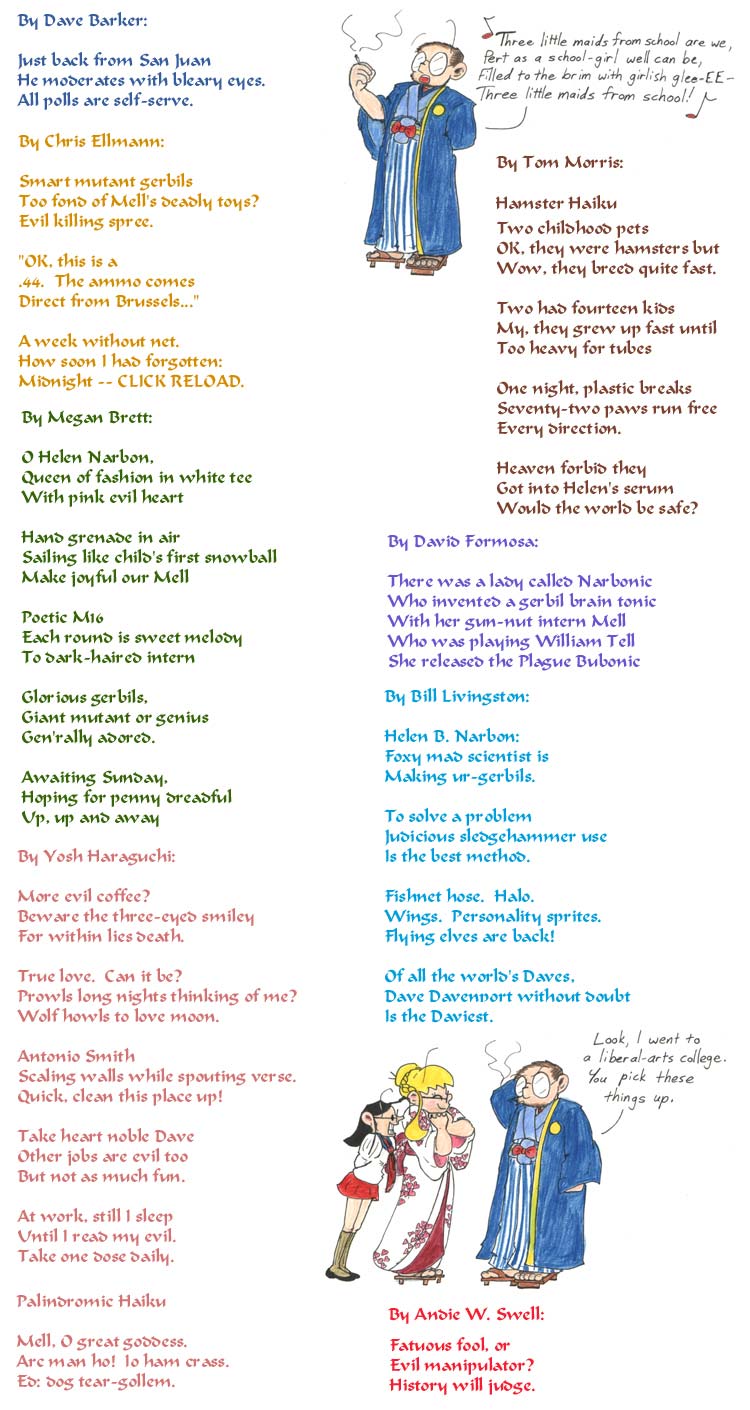 By Dave Barker:
Just back from San Juan
He moderates with bleary eyes.
All polls are self-serve.
By Chris Ellmann:
Smart mutant gerbils
Too fond of Mell's deadly toys?
Evil killing spree.
"OK, this is a
.44. The ammo comes
Direct from Brussels..."
A week without net.
How soon I had forgotten:
Midnight -- CLICK RELOAD.
By Megan Brett:
O Helen Narbon,
Queen of fashion in white tee
With pink evil heart
Hand grenade in air
Sailing like child's first snowball
Make joyful our Mell
Poetic M16
Each round is sweet melody
To dark-haired intern
Glorious gerbils,
Giant mutant or genius
Gen'rally adored.
Awaiting Sunday,
Hoping for penny dreadful
Up, up and away
By Yosh Haraguchi:
More evil coffee?
Beware the three-eyed smiley
For within lies death.
True love. Can it be?
Prowls long nights thinking of me?
Wolf howls to love moon.
Antonio Smith
Scaling walls while spouting verse.
Quick, clean this place up!
Take heart noble Dave
Other jobs are evil too
But not as much fun.
At work, still I sleep
Until I read my evil.
Take one dose daily.
Palindromic Haiku
Mell, O great goddess.
Arc man ho! Io ham crass.
Ed: dog tear-gollem.
Three little maids from school are we,
Pert as a school-girl well can be,
Filled to the brim with girlish glee-EE-
Three little maids from school!
By Tom Morris:
Hamster Haiku
Two childhood pets
OK, they were hamsters but
Wow, they breed quite fast.
Two had fourteen kids
My, they grew up fast until
Too heavy for tubes
One night, plastic breaks
Seventy-two paws run free
Every direction.
Heaven forbid they
Got into Helen's serum
Would the world be safe?
By David Formosa:
There was a lady called Narbonic
Who invented a gerbil brain tonic
With her gun-nut intern Mell
Who was playing William Tell
She released the Plague Bubonic
By Bill Livingston:
Helen B. Narbon:
Foxy mad scientist is
Making ur-gerbils.
To solve a problem
Judicious sledgehammer use
Is the best method.
Fishnet hose. Halo.
Wings. Personality sprites.
Flying elves are back!
Of all the world's Daves,
Dave Davenport without doubt
Is the Daviest.
Look, I went to
a liberal-arts college.
You pick these
things up.
By Andie W. Swell:
Fatuous fool, or
Evil manipulator?
History will judge.